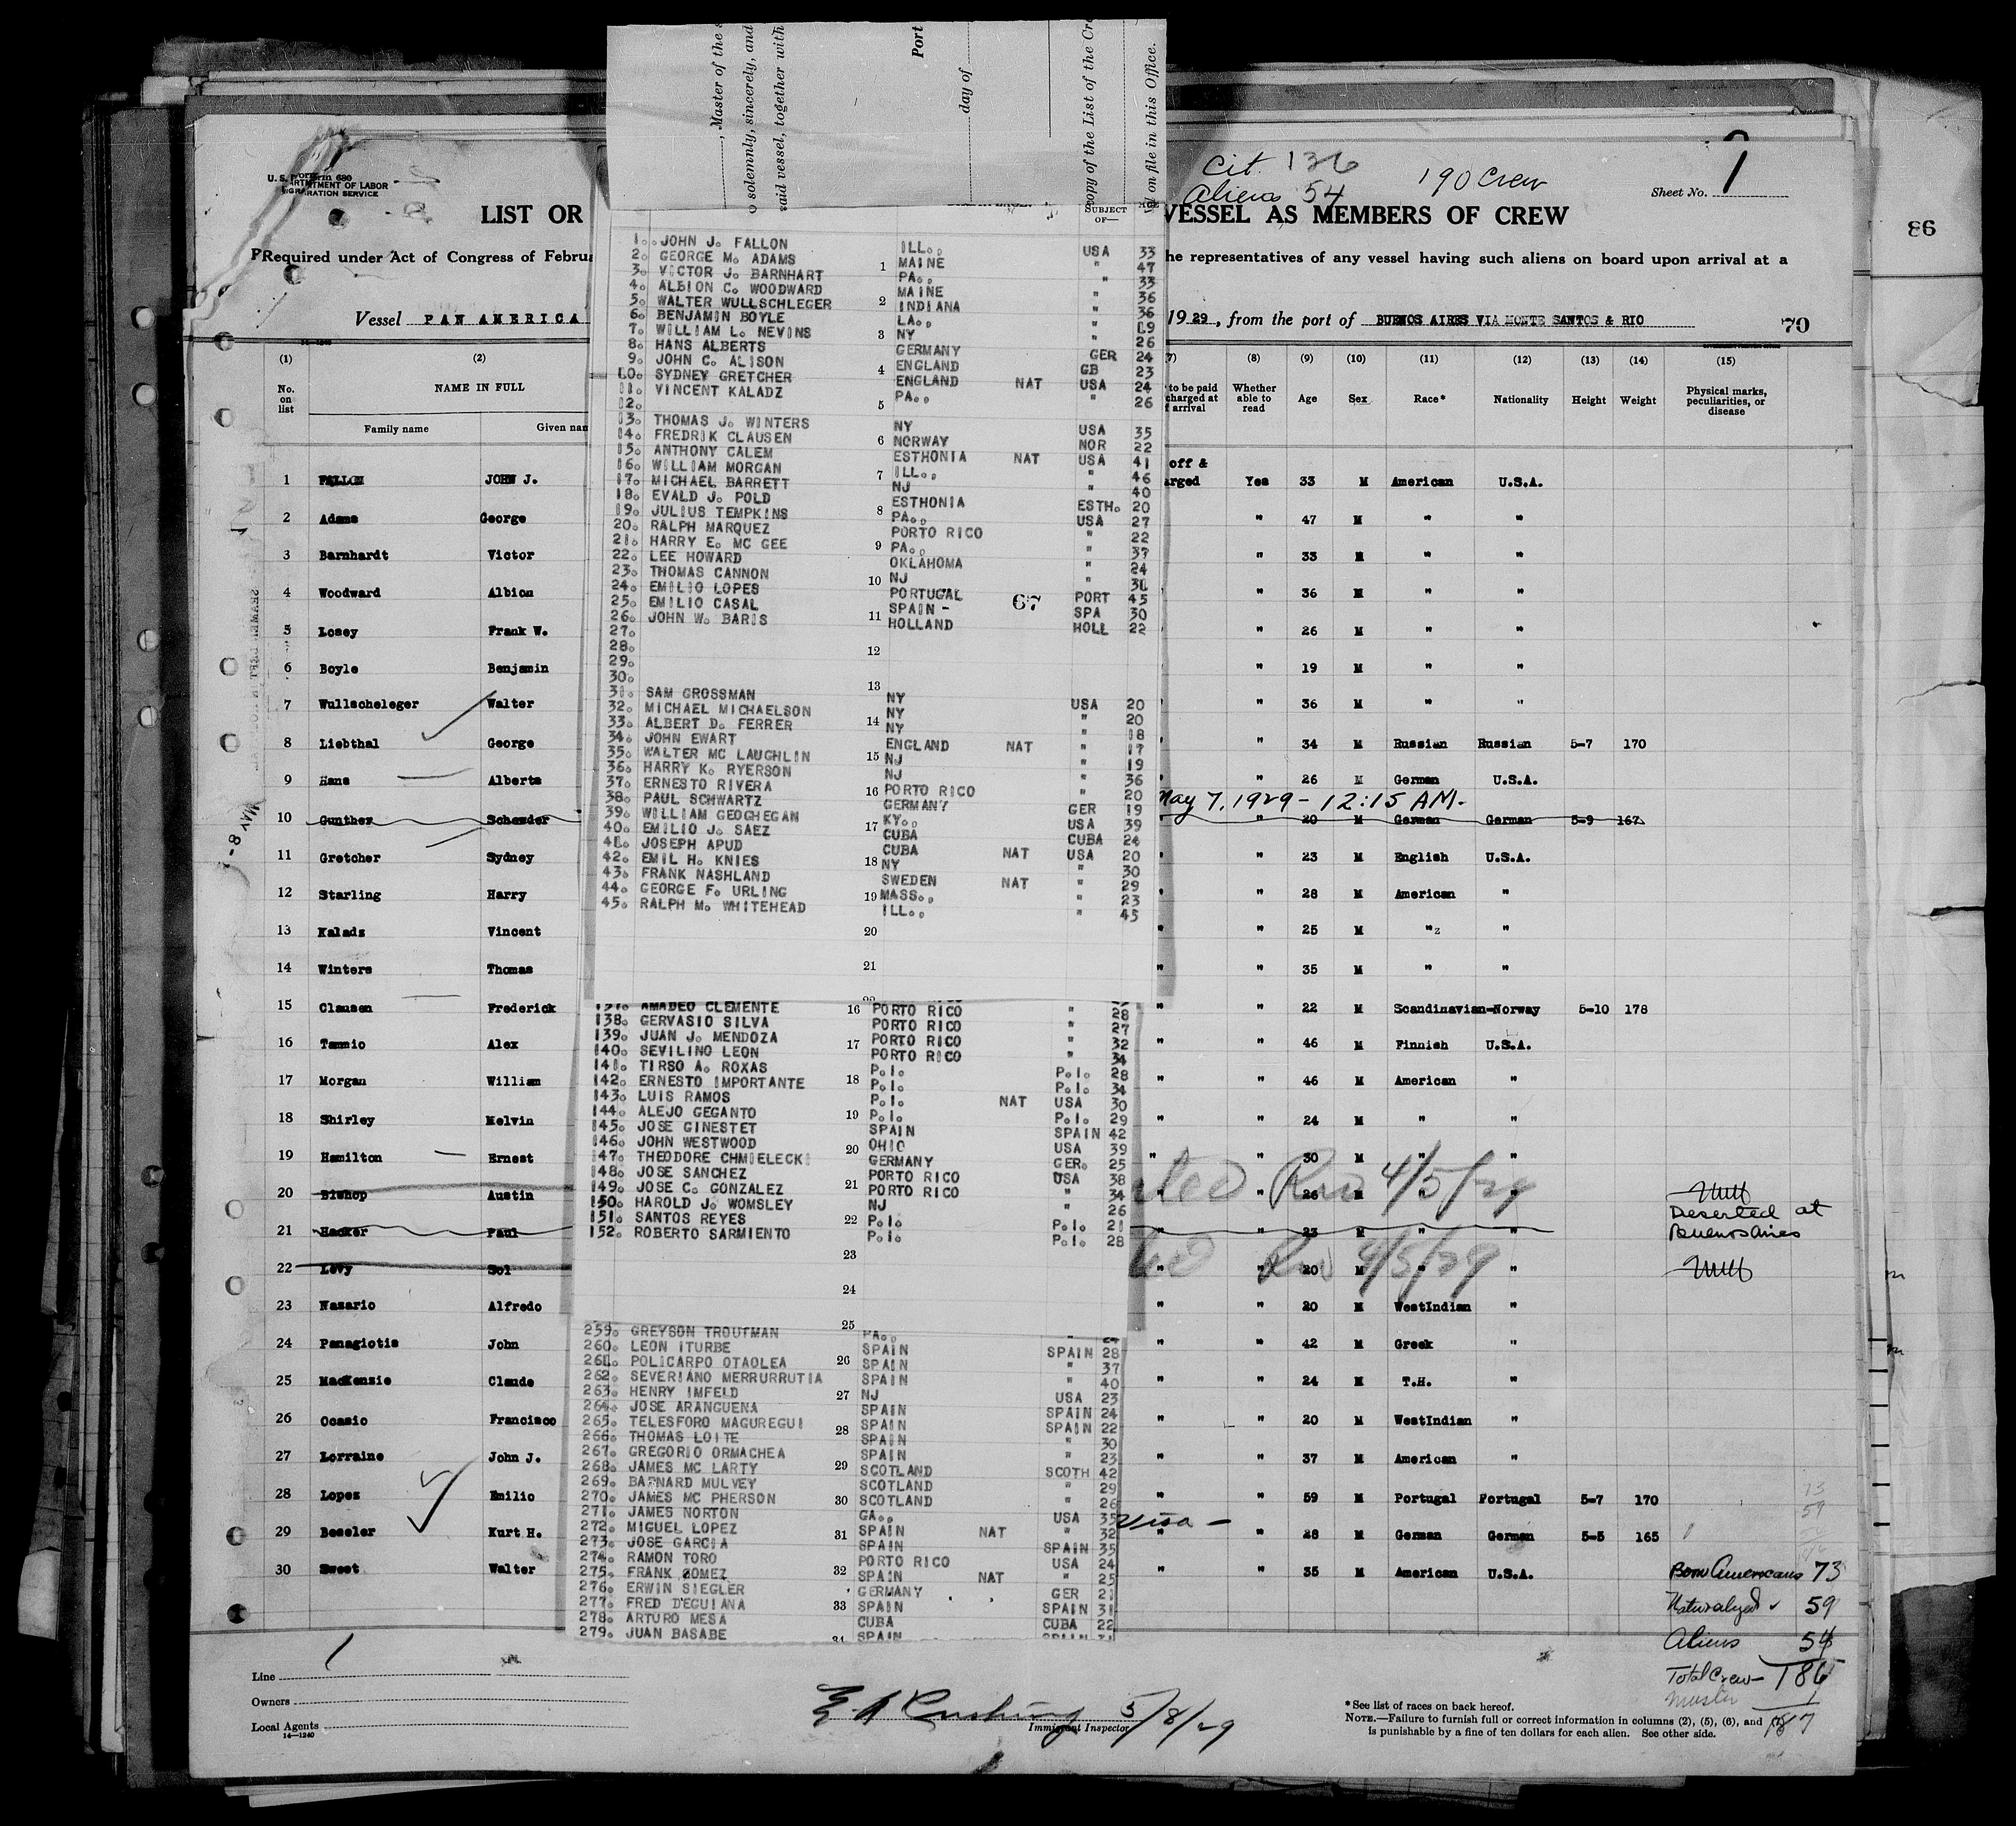 , Master of the
solemnly, sincerely, and
said vessel, together with
Port
day of
copy of the List of the Cre
on file in this Office.
U. S. DEPARTMENT OF LABOR
IMMIGRATION SERVICE
Cit. 136
Aliens 54
190 Crew
Sheet No. 1
LIST OR
VESSEL AS MEMBERS OF CREW
Required under Act of Congress of Februa
he representatives of any vessel having such aliens on board upon arrival at a
86
Vessel PAN AMERICA
19 29, from the port of BUENOS AIRES VIA MONTE SANTOS & RIO
70
(1) (2) (7) (8) (9) (10) (11) (12) (13) (14) (15)
No. on list
NAME IN FULL
Family name Given nam
to be paid
charged at
arrival
Whether able to read
Age
Sex
Race*
Nationality
Height
Weight
Physical marks, peculiarities, or disease
SUBJECT OF—
1. JOHN J. FALLON ILL., USA 33
2. GEORGE M. ADAMS MAINE " 47
3. VICTOR J. BARNHART PA., " 33
4. ALBION C. WOODWARD MAINE " 36
5. WALTER WULLSCHLEGER INDIANA " 36
6. BENJAMIN BOYLE LA., " 19
7. WILLIAM L. NEVINS NY " 26
8. HANS ALBERTS GERMANY GER 24
9. JOHN C. ALISON ENGLAND GB 23
10. SYDNEY GRETCHER ENGLAND NAT USA 24
11. VINCENT KALADZ PA., " 26
12.
13. THOMAS J. WINTERS NY USA 35
14. FREDRIK CLAUSEN NORWAY NOR 22
15. ANTHONY CALEM ESTHONIA NAT USA 41
16. WILLIAM MORGAN ILL., " 46
17. MICHAEL BARRETT NJ " 40
18. EVALD J. POLD ESTHONIA ESTH. 20
19. JULIUS TEMPKINS PA., USA 27
20. RALPH MARQUEZ PORTO RICO " 22
21. HARRY E. MC GEE PA., " 37
22. LEE HOWARD OKLAHOMA " 24
23. THOMAS CANNON NJ " 31
24. EMILIO LOPES PORTUGAL PORT 45
25. EMILIO CASAL SPAIN - SPA 30
67
26. JOHN W. BARIS HOLLAND HOLL 22
27.
28.
29.
30.
31. SAM GROSSMAN NY USA 20
32. MICHAEL MICHAELSON NY " 20
33. ALBERT D. FERRER NY " 18
34. JOHN EWART ENGLAND NAT " 17
35. WALTER MC LAUGHLIN NJ " 19
36. HARRY K. RYERSON NJ " 36
37. ERNESTO RIVERA PORTO RICO " 20
38. PAUL SCHWARTZ GERMANY GER 19
39. WILLIAM GEOGHEGAN KY., USA 39
40. EMILIO J. SAEZ CUBA CUBA 24
41. JOSEPH APUD CUBA NAT USA 20
42. EMIL H. KNIES NY " 30
43. FRANK NASHLAND SWEDEN NAT " 29
44. GEORGE F. URLING MASS., " 23
45. RALPH M. WHITEHEAD ILL., " 45
137. AMADEO CLEMENTE PORTO RICO " 28
138. GERVASIO SILVA PORTO RICO " 27
139. JUAN J. MENDOZA PORTO RICO " 32
140. SEVILINO LEON PORTO RICO " 34
141. TIRSO A. ROXAS P.I. P.I. 28
142. ERNESTO IMPORTANTE P.I. P.I. 34
143. LUIS RAMOS P.I. NAT USA 30
144. ALEJO GEGANTO P.I. P.I. 29
145. JOSE GINESTET SPAIN SPAIN 42
146. JOHN WESTWOOD OHIO USA 39
147. THEODORE CHMIELECKI GERMANY GER. 25
148. JOSE SANCHEZ PORTO RICO USA 38
149. JOSE C. GONZALEZ PORTO RICO " 34
150. HAROLD J. WOMSLEY NJ " 26
151. SANTOS REYES P.I. P.I. 21
152. ROBERTO SARMIENTO P.I. P.I. 28
259. GREYSON TROUTMAN PA., "
260. LEON ITURBE SPAIN SPAIN 28
261. POLICARPO OTAOLEA SPAIN " 37
262. SEVERIANO MERRURRUTIA SPAIN " 40
263. HENRY IMFELD NJ USA 23
264. JOSE ARANGUENA SPAIN SPAIN 24
265. TELESFORO MAGUREGUI SPAIN SPAIN 22
266. THOMAS LOITE SPAIN " 30
267. GREGORIO ORMACHEA SPAIN " 23
268. JAMES MC LARTY SCOTLAND SCOTH 42
269. BARNARD MULVEY SCOTLAND " 29
270. JAMES MC PHERSON SCOTLAND " 26
271. JAMES NORTON GA., USA 35
272. MIGUEL LOPEZ SPAIN NAT " 32
273. JOSE GARCIA SPAIN SPAIN 35
274. RAMON TORO PORTO RICO USA 24
275. FRANK GOMEZ SPAIN NAT " 25
276. ERWIN SIEGLER GERMANY GER 21
277. FRED D'EGUIANA SPAIN SPAIN 31
278. ARTURO MESA CUBA CUBA 22
279. JUAN BASABE SPAIN
off &
arged
1 FALLON JOHN J. Yes 33 M American U.S.A.
2 Adams George " 47 M " "
3 Barnhardt Victor " 33 M " "
4 Woodward Albion " 36 M " "
5 Losey Frank W. " 26 M " "
6 Boyle Benjamin " 19 M " "
7 Wullscheleger Walter " 36 M " "
8 Liebthal George " 34 M Russian Russian 5-7 170
9 Hans Alberts " 26 M German U.S.A.
May 7, 1929 - 12:15 AM.
10 Gunther Schewder " 20 M German German 5-9 167
MAY 8-
11 Gretcher Sydney " 23 M English U.S.A.
12 Starling Harry " 28 M American "
13 Kaladz Vincent " 25 M "z "
14 Winters Thomas " 35 M " "
15 Clausen Frederick " 22 M Scandinavian-Norway 5-10 178
16 Tammio Alex " 46 M Finnish U.S.A.
17 Morgan William " 46 M American "
18 Shirley Melvin " 24 M " "
19 Hamilton Ernest " 30 M " "
ted Rio 4/5/29
20 Bishop Austin " 26 M " "
Deserted at
Buenos Aires
21 Hacker Paul " 23 M " "
ted Rio 4/5/29
22 Levy Sol " 20 M " "
23 Nazario Alfredo " 20 M WestIndian "
24 Panagiotis John " 42 M Greek "
25 MacKenzie Claude " 24 M T.H. "
26 Ocasio Francisco " 20 M WestIndian "
27 Lorraine John J. " 37 M American "
28 Lopez Emilio " 59 M Portugal Portugal 5-7 170
Visa -
29 Beseler Kurt H. " 28 M German German 5-5 165
30 Sweet Walter " 35 M American U.S.A.
Born Americans 73
Naturalyed 59
Aliens 54
Total Crew - 186
Master 1
187
Line 1
Owners
Local Agents
14—1240
E A Cushing 5/8/29
Immigrant Inspector
*See list of races on back hereof.
NOTE.—Failure to furnish full or correct information in columns (2), (5), (6), and
is punishable by a fine of ten dollars for each alien. See other side.